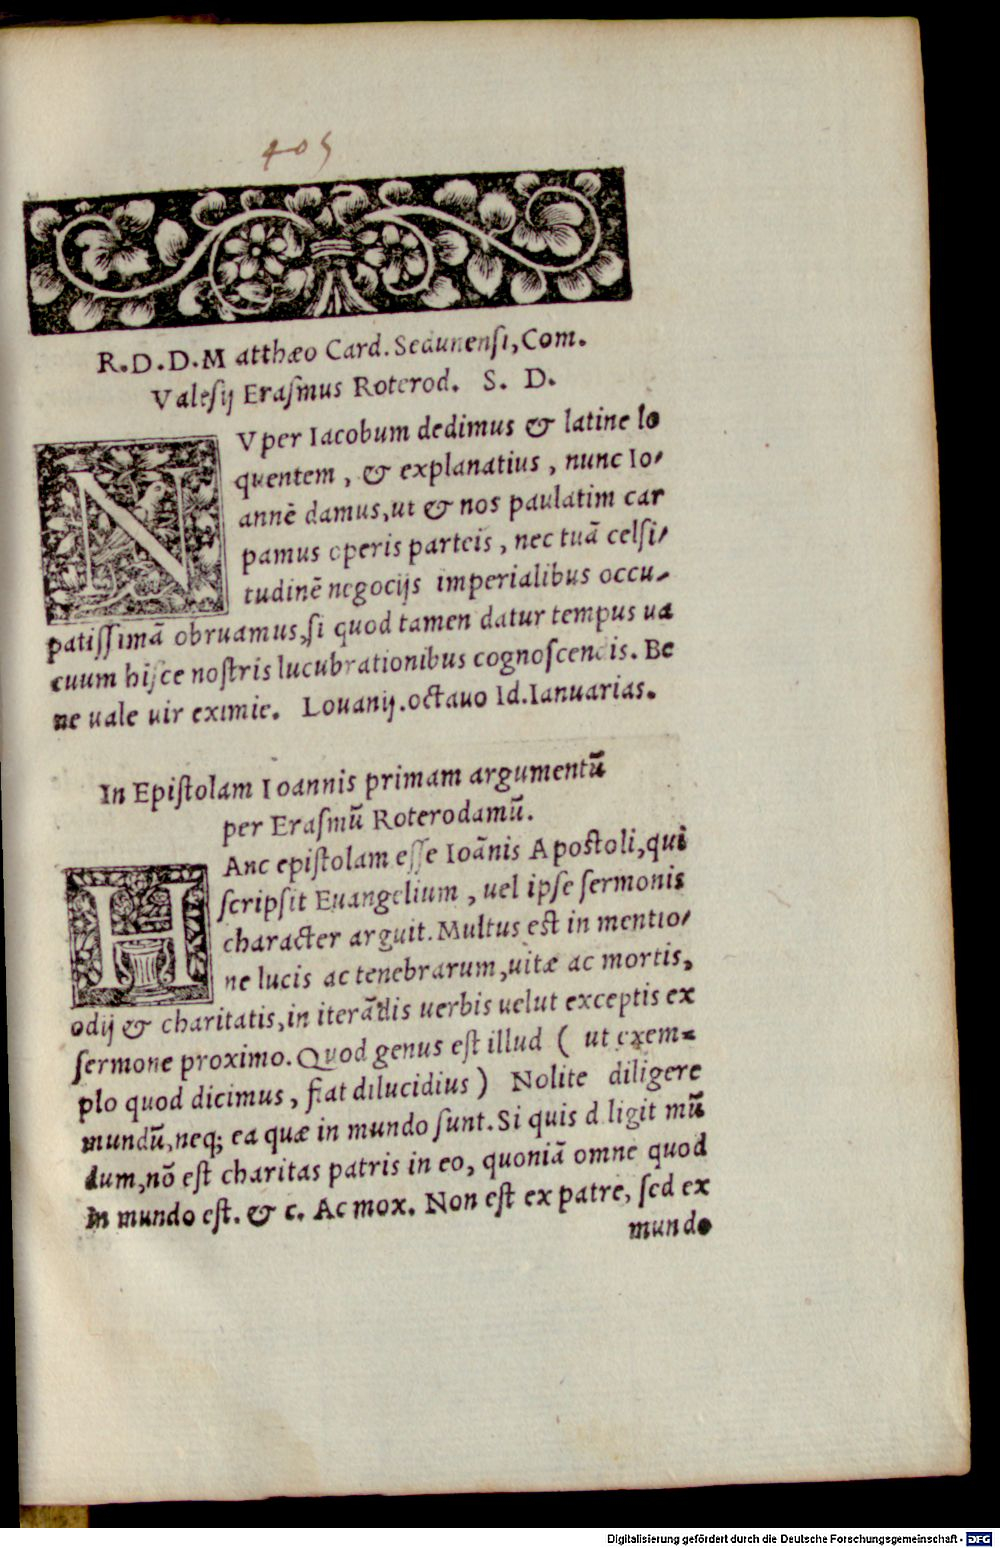 405
R.D.D.Matthæo Card. Sedunensi, Com.
Valesij Erasmus Roterod. S. D.
NVper Iacobum dedimus & latine lo
quentem, & explanatius, nunc Io-
annē damus, ut & nos paulatim car
pamus operis parteis, nec tuā celsi-
tudinē negocijs imperialibus occu-
patissimā obruamus, si quod tamen datur tempus ua
cuum hisce nostris lucubrationibus cognoscendis. Be
ne uale uir eximie. Louanij. octauo Id. Ianuarias.
In Epistolam Ioannis primam argumentū
per Erasmū Roterodamū.
HAnc epistolam esse Ioānis Apostoli, qui
scripsit Euangelium, uel ipse sermonis
character arguit. Multus est in mentio-
ne lucis ac tenebrarum, uitæ ac mortis,
odij & charitatis, in iterādis uerbis uelut exceptis ex
sermone proximo. Quod genus est illud ( ut exem=
plo quod dicimus, fiat dilucidius ) Nolite diligere
mundū, neq; ea quæ in mundo sunt. Si quis diligit mū
dum, nō est charitas patris in eo, quoniā omne quod
in mundo est. & c. Ac mox. Non est ex patre, sed ex
mundo
Digitalisierung gefördert durch die Deutsche Forschungsgemeinschaft - DFG